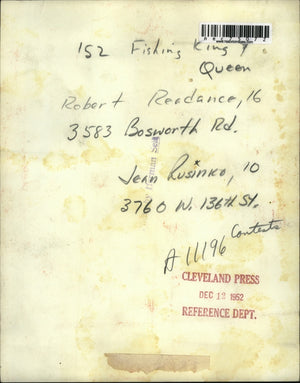 152 Fishing King &
Queen
Robert Reardance, 16
3583 Bosworth Rd.
Jean Rusinko, 10
3760 W. 136th St.
Contests
A 11196
CLEVELAND PRESS
DEC 12 1952
REFERENCE DEPT.